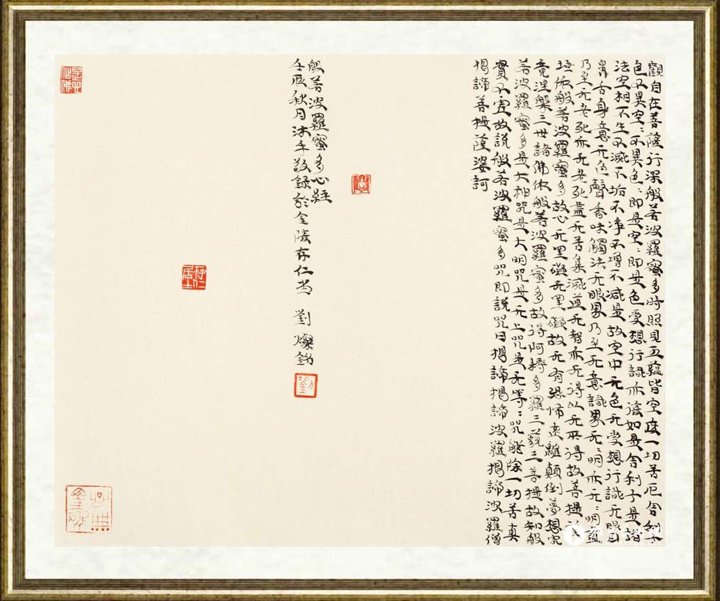 觀自在菩薩行深般若波羅蜜多時照見五蘊皆空度一切苦厄舍利子
色不異空:不異色:即是空:即是色受想行識亦復如是舍利子是諸
法空相不生不滅不垢不净不增不減是故空中无色无受想行識无眼耳
鼻舌身意无色聲香味觸法无眼界乃至无意識界无:明亦无:明盡
乃至无老死亦无老死盡无苦集滅道无智亦无得以无所得故菩提薩
埵依般若波羅蜜多故心无罣礙无罣礙故无有恐怖遠離顛倒夢想究
竟涅槃三世諸佛依般若波羅蜜多故得阿耨多羅三藐三菩提故知般
若波羅蜜多是大神咒是大明咒是无上咒是无等:咒能除一切苦真
實不虛故說般若波羅蜜多咒即說咒曰揭諦揭諦波羅揭諦波羅僧
揭諦菩提薩婆訶
般若波羅蜜多心經
秋月沐手敬錄於金陵存仁堂 劉燦銘
劉